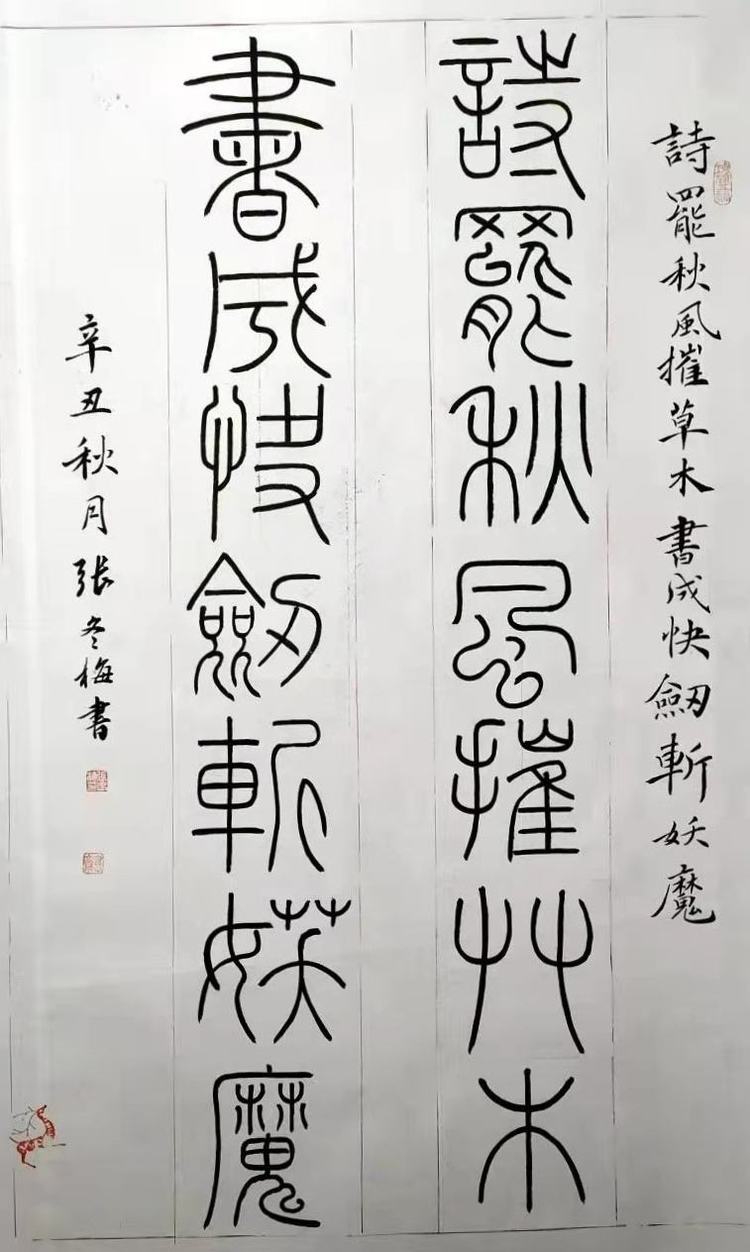 詩罷秋風摧草木書成快劔斬妖魔
詩罷秋風摧艸木
書成快劔斬媄魔
辛丑秋月張冬梅書